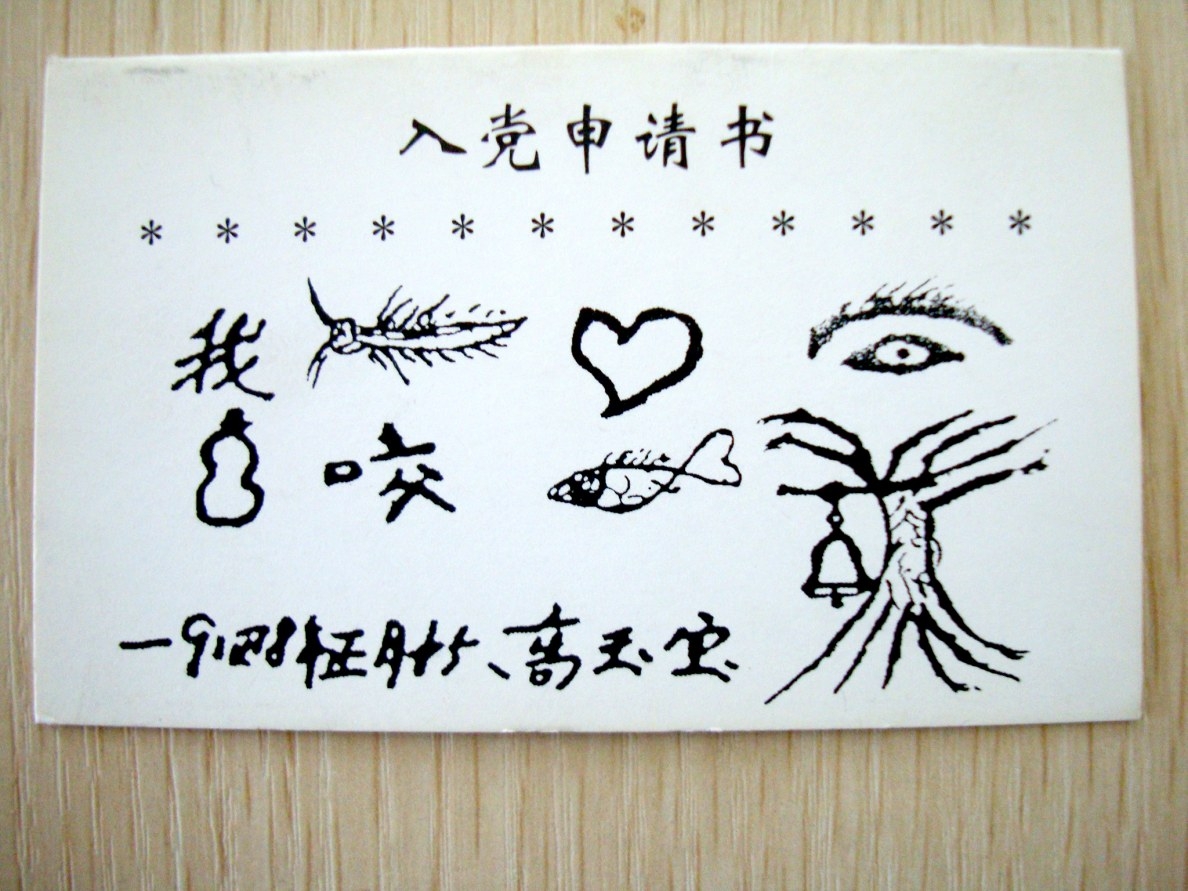 入党申请书
* * * * * * * * * * * *
我
咬
一9四8年正月 、高玉宝